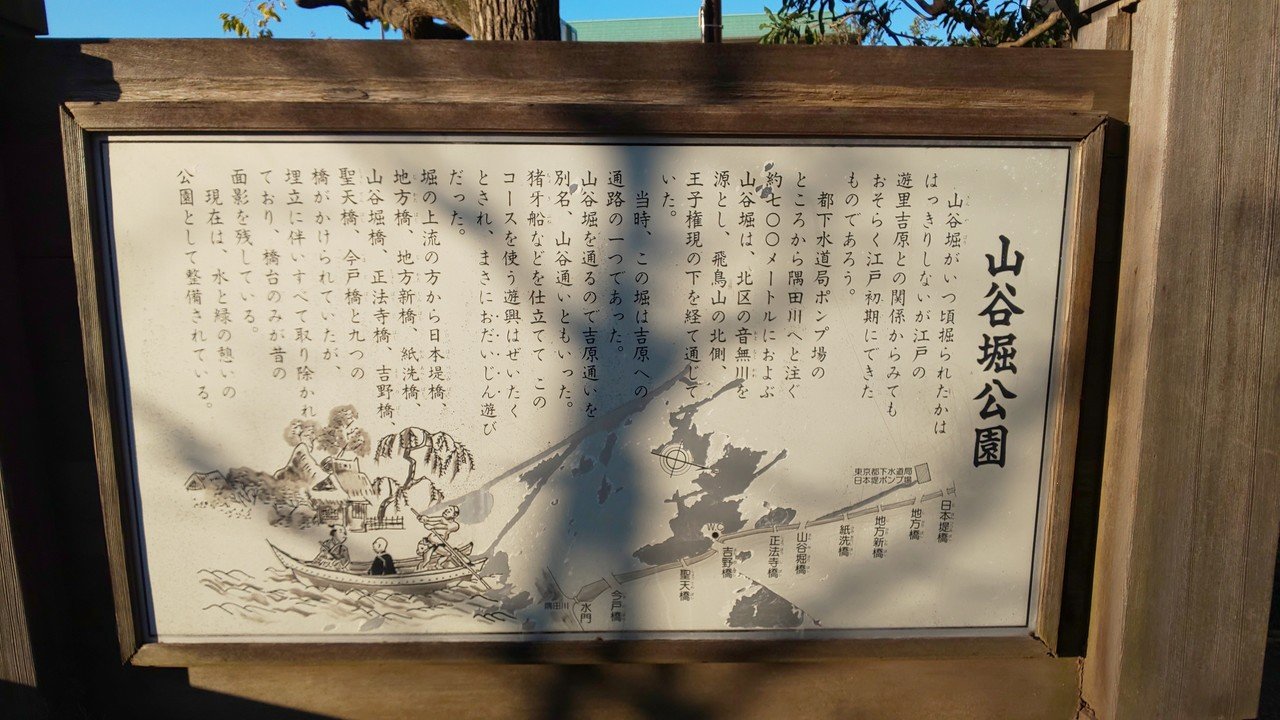 山谷堀公園
山谷堀がいつ頃掘られたかは
はっきりしないが江戸の
遊里吉原との関係からみても
おそらく江戸初期にできた
ものであろう。
都下水道局ポンプ場の
ところから隅田川へと注ぐ
約七〇〇メートルにおよぶ
山谷堀は、北区の音無川を
源とし、飛鳥山の北側、
王子権現の下を経て通じて
いた。
当時、この堀は吉原への
通路の一つであった。
山谷堀を通るので吉原通いを
別名、山谷通いともいった。
猪牙船などを仕立てて この
コースを使う遊興はぜいたく
とされ、まさにおだいじん遊び
だった。
堀の上流の方から日本堤橋、
地方橋、地方新橋、紙洗橋、
山谷堀橋、正法寺橋、吉野橋
聖天橋、今戸橋と九つの
橋がかけられていたが、
埋立に伴いすべて取り除かれ
ており、橋台のみが昔の
面影を残している。
現在は、水と緑の憩いの
公園として整備されている。
東京都下水道局
日本堤ポンプ場
日本堤橋
地方橋
地方新橋
紙洗橋
山谷堀橋
正法寺橋
WC
吉野橋
聖天橋
今戸橋
水門
隅田川